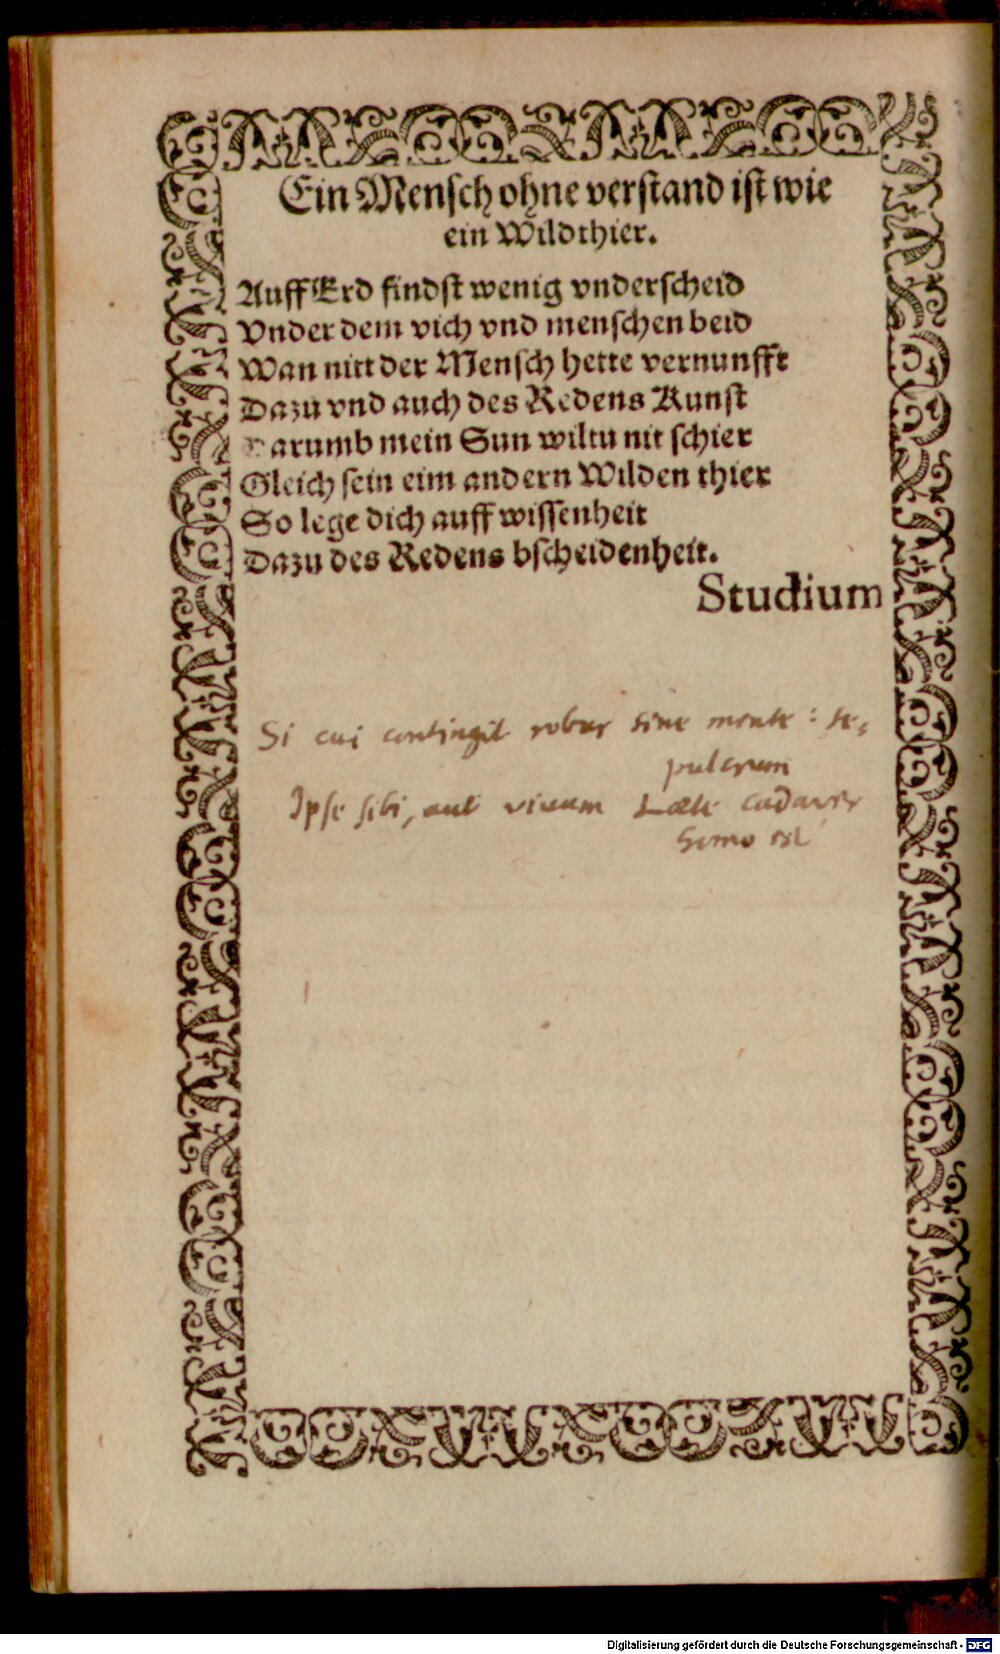 Ein Mensch ohne verstand ist wie
ein Wildthier.
Auff Erd findst wenig vnderscheid
Vnder dem vich vnd menschen beid
Wan nitt der Mensch hette vernunfft
Dazu vnd auch des Redens Kunst
Darumb mein Sun wiltu nit schier
Gleich sein eim andern Wilden thier
So lege dich auff wissenheit
Dazu des Redens bscheidenheit.
Studium
Si cui contingit robur sine mente : se-
pulcrum
Ipse sibi, aut vivum cadaver
homo est
Digitalisierung gefördert durch die Deutsche Forschungsgemeinschaft - DFG